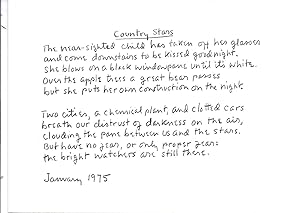 Country Stars
The near-sighted child has taken off her glasses
and come downstairs to be kissed goodnight.
She blows on a black windowpane until it's white.
Over the apple trees a great bear passes
but she puts her own construction on the night.
Two cities, a chemical plant, and clotted cars
breath our distrust of darkness on the air,
clouding the pane between us and the stars.
But have no fear, or only proper fear:
the bright watchers are still there.
January 1975